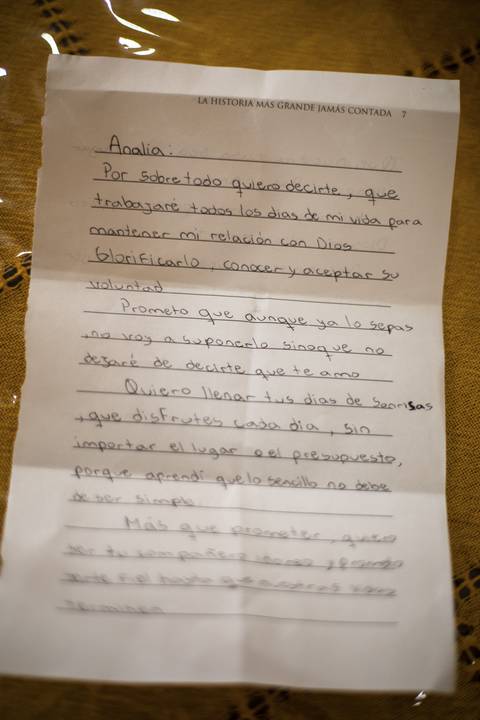 LA HISTORIA MÁS GRANDE JAMÁS CONTADA 7
Analia:
Por sobre todo quiero decirte, que
trabajaré todos los dias de mi vida para
mantener mi relación con Dios
Glorificarlo, conocer y aceptar su
voluntad
Prometo que aunque ya lo sepas
no voy a suponerlo sinoque no
dejaré de decirte que te amo
Quiero llenar tus dias de sonrisas
, que disfrutes cada dia, sin
importar el lugar o el presupuesto,
porque aprendí que lo sencillo no debe
de ser simple
Más que prometer, quiero
ser tu compañero